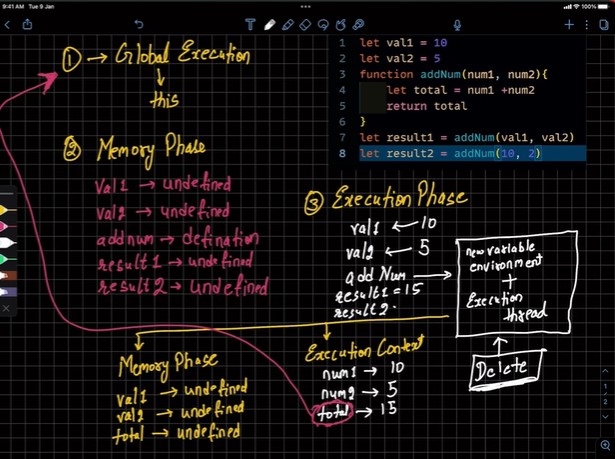 9:41 AM Tue 9 Jan
100%
1 let val1 = 10
2 let val2 = 5
3 function addNum(num1, num2){
4 let total = num1 +num2
5 return total
6 }
7 let result1 = addNum(val1, val2)
8 let result2 = addNum(10, 2)
① → Global Execution
this
② Memory Phase
val1 → undefined
val2 → undefined
addnum → defination
result1 → undefined
result2 → undefined
③ Execution Phase
val1 ← 10
val2 ← 5
add Num →
result1 = 15
result2 -
new variable
environment
+
Execution
thread
Delete
Memory Phase
val1 → undefined
val2 → undefined
total → undefined
Execution Context
num1 → 10
num2 → 5
total → 15
1
2